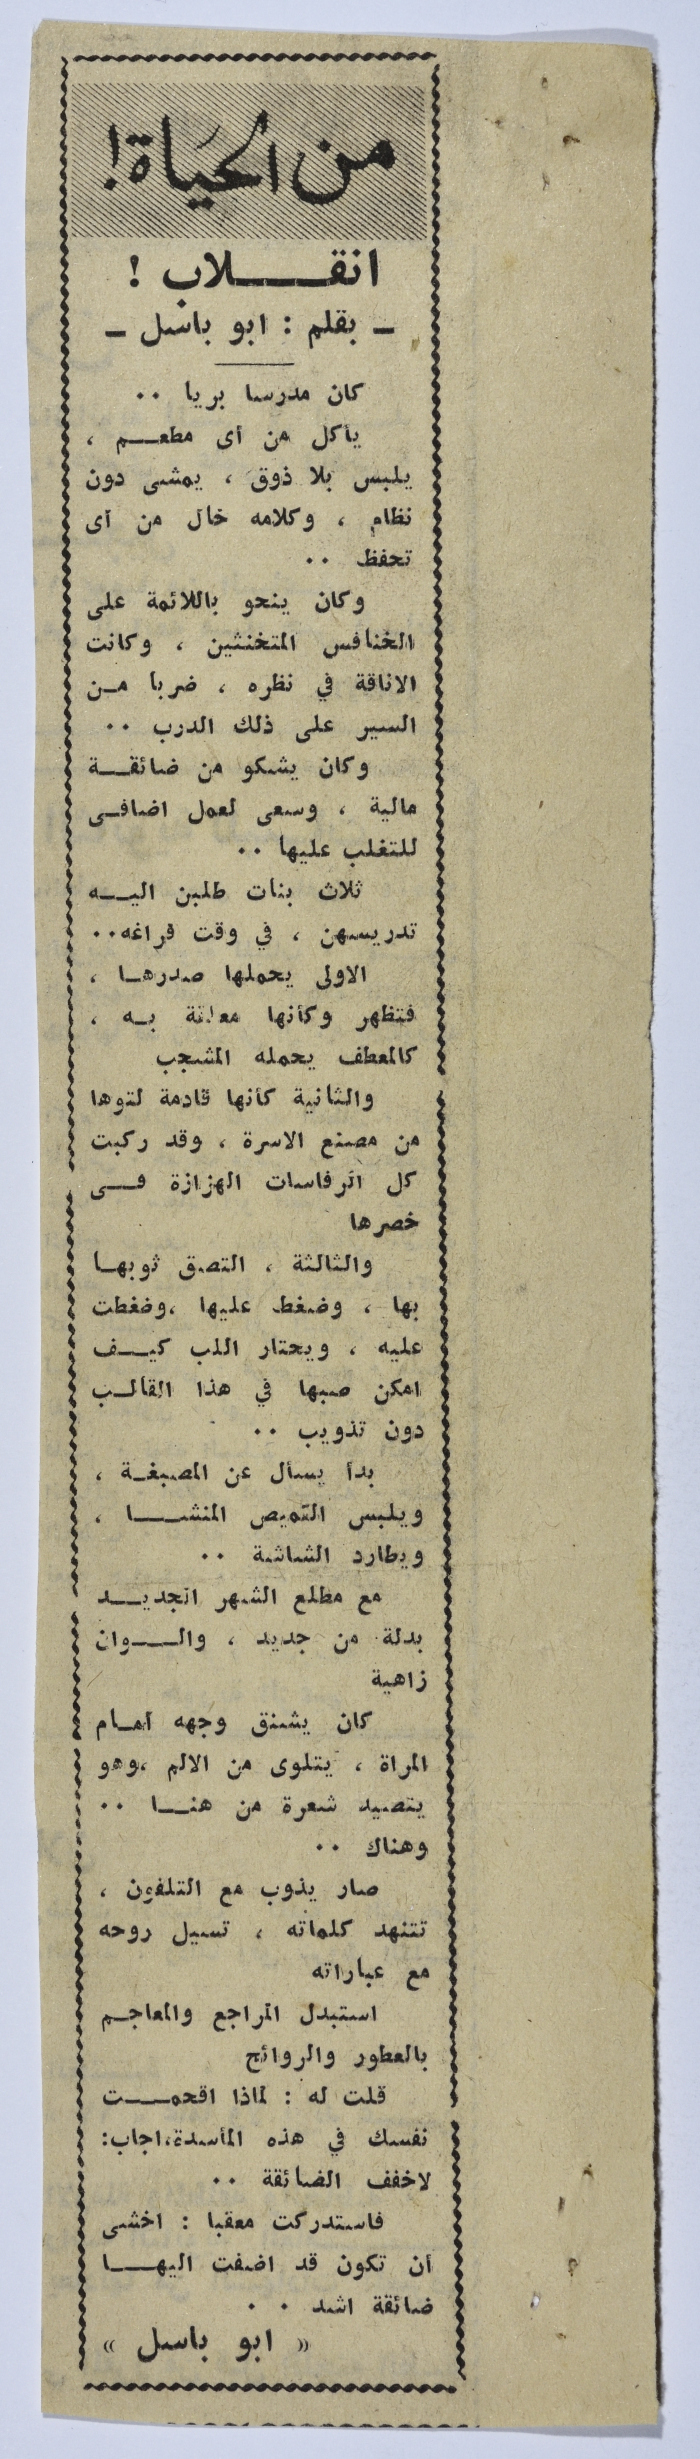 من الحياة!
انقلاب !
ـ بقلم : ابو باسل ـ
كان مدرسا بريا ..
يأكل من أى مطعم ،
يلبس بلا ذوق ، يمشى دون
نظام ، وكلامه خال من أى
تحفظ ..
وكان ينحو باللائمة على
الخنافس المتخنثين ، وكانت
الاناقة في نظره ، ضربا من
السير على ذلك الدرب ..
وكان يشكو من ضائقة
مالية ، وسعى لعمل اضافى
للتغلب عليها ..
ثلاث بنات طلبن اليه
تدريسهن ، في وقت فراغه..
الاولى يحملها صدرها ،
فتظهر وكأنها معلقة به ،
كالمعطف يحمله المشجب
والثانية كأنها قادمة لتوها
من مصنع الاسرة ، وقد ركبت
كل الرفاسات الهزازة فى
خصرها
والثالثة ، التصق ثوبها
بها ، وضغط عليها ،وضغطت
عليه ، ويحتار اللب كيف
امكن صبها في هذا القالب
دون تذويب ..
بدأ يسأل عن المصبغة ،
ويلبس القميص المنشا ،
ويطارد الشاشة ..
مع مطلع الشهر الجديد
بدلة من جديد ، والوان
زاهية
كان يشنق وجهه أمام
المراة ، يتلوى من الالم ،وهو
يتصيد شعرة من هنا ..
وهناك ..
صار يذوب مع التلفون ،
تتنهد كلماته ، تسيل روحه
مع عباراته
استبدل المراجع والمعاجم
بالعطور والروائح
قلت له : لماذا اقحمت
نفسك في هذه المأسدة،اجاب:
لاخفف الضائقة ..
فاستدركت معقبا : اخشى
أن تكون قد اضفت اليها
ضائقة اشد . .
« ابو باسل »